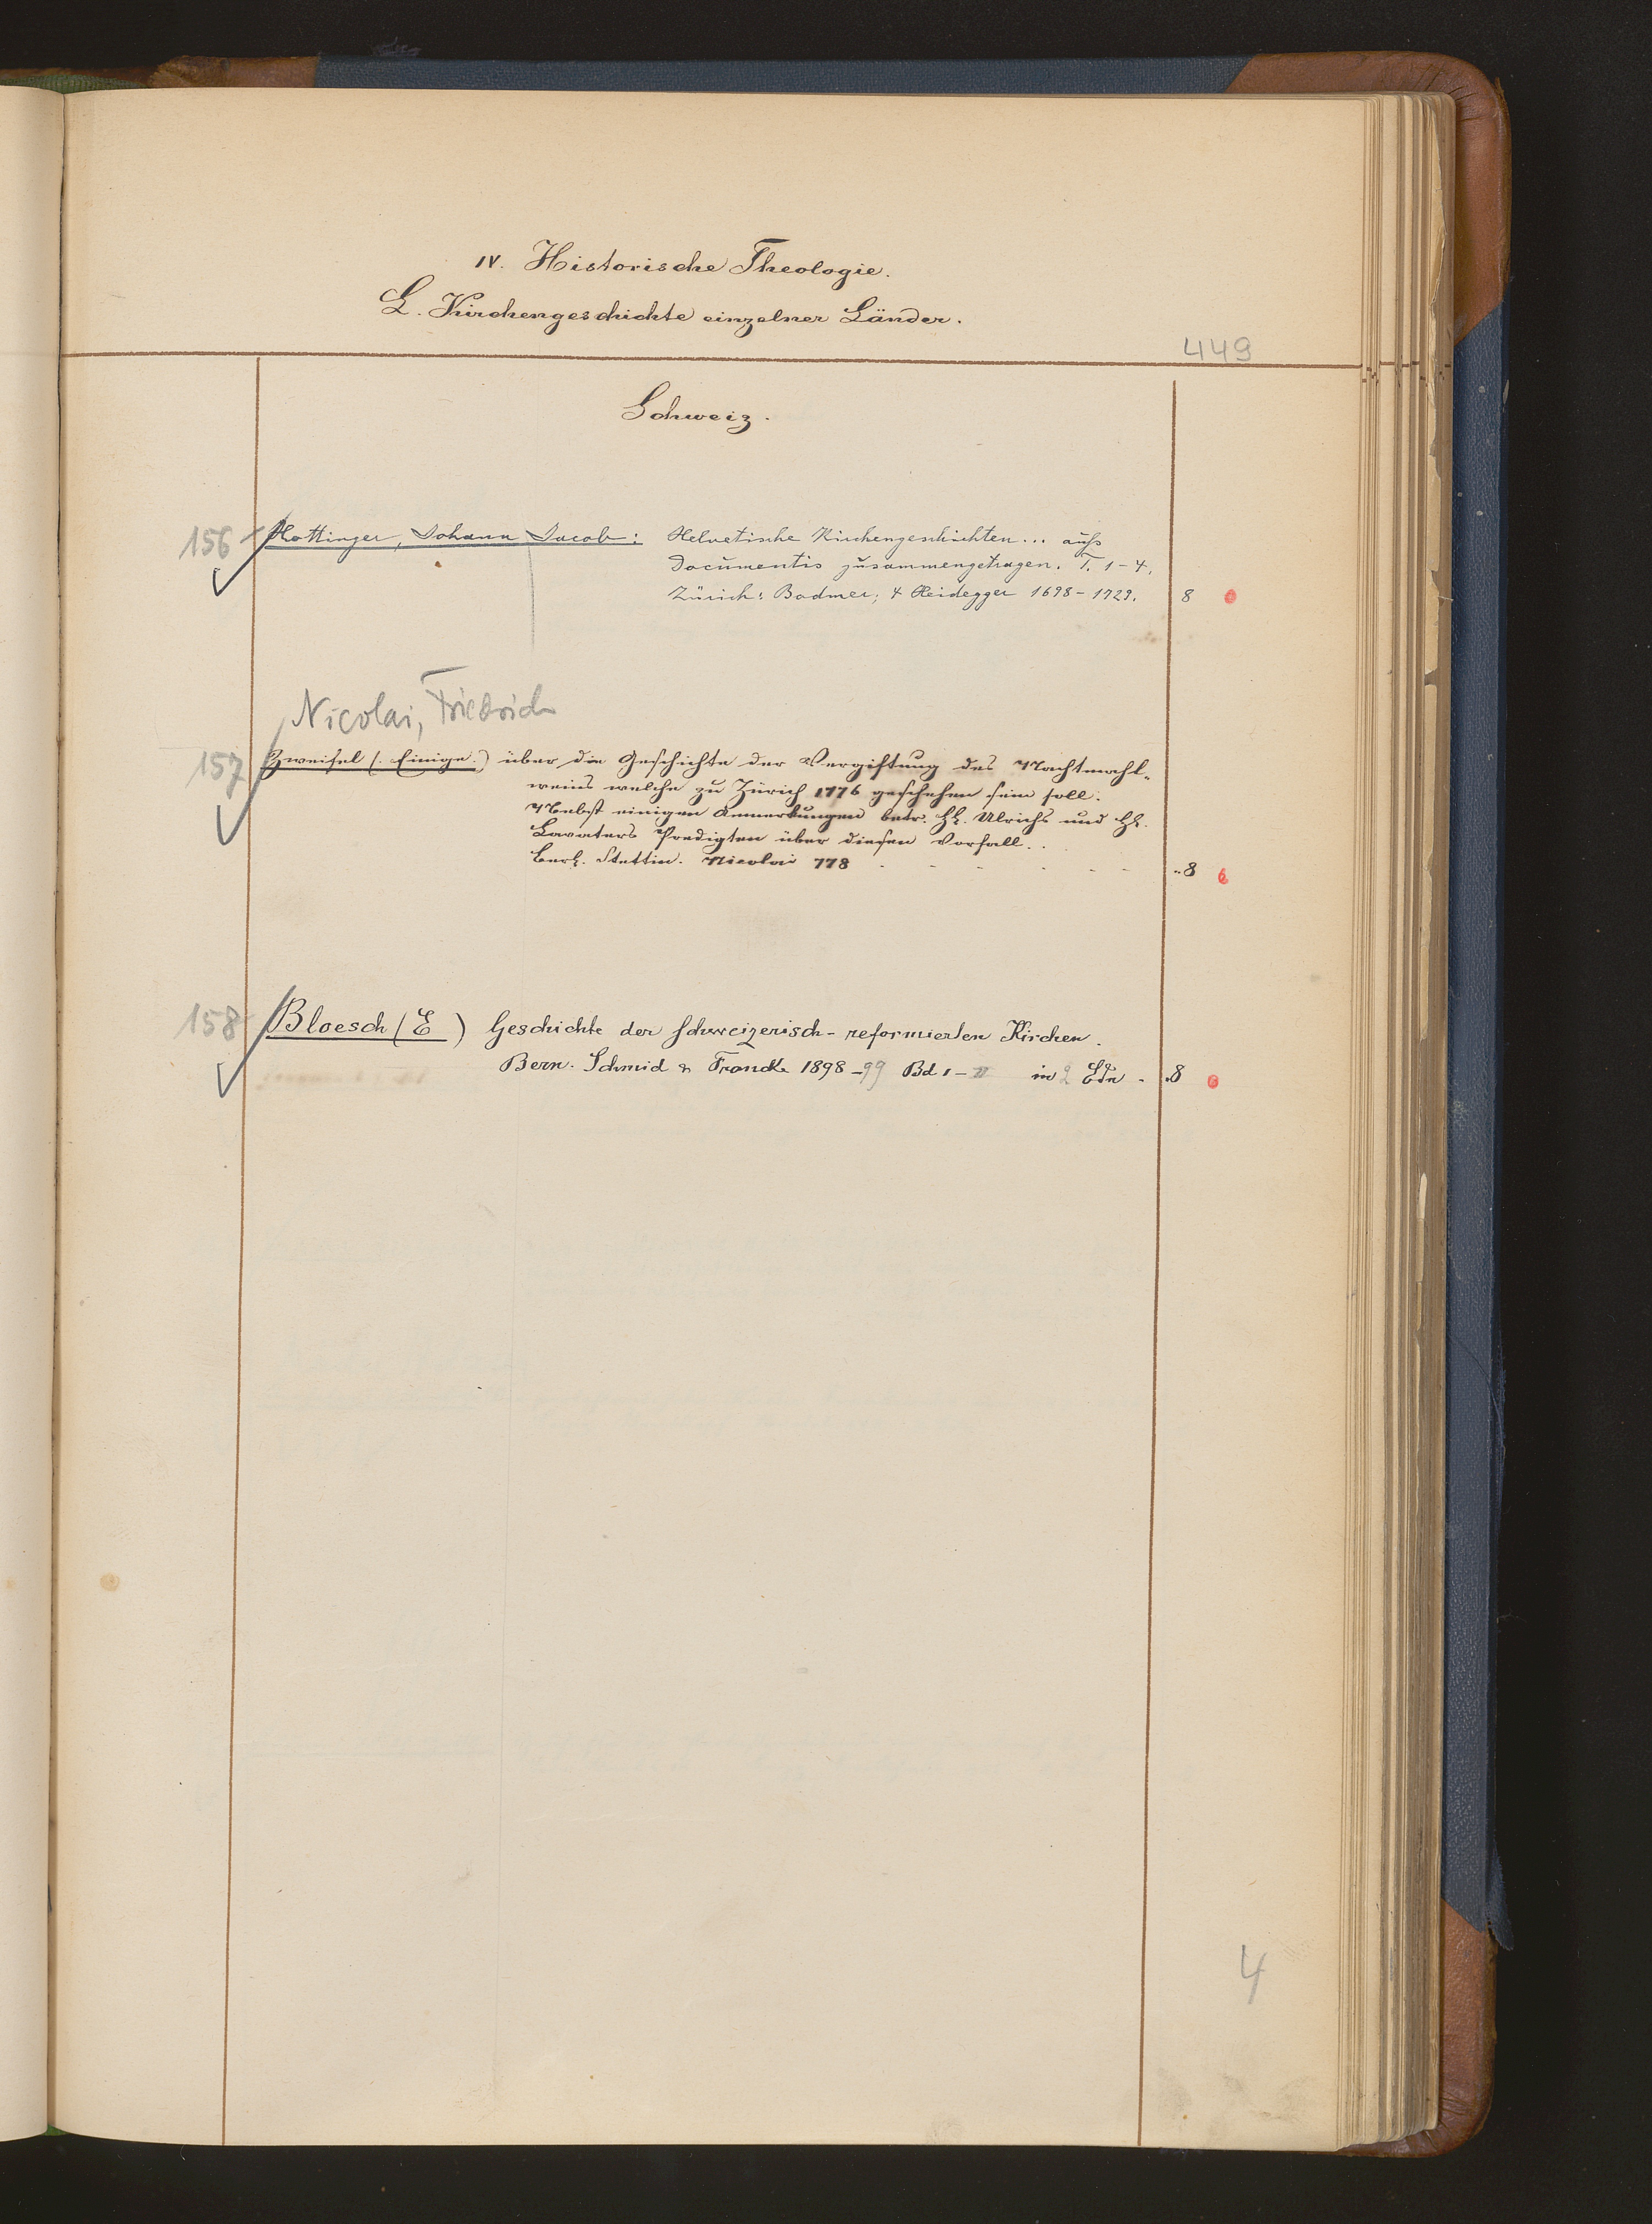 IV. Historische Theologie.
L. Kirchengeschichte einzelner Länder.
449
Schweiz.
156 Hottinger, Johann Jacob: Helvetische Kirchengeschichten... auß
Documentis zusammengetragen. T. 1-4.
Zürich: Bodmer; 4 Heidegger 1698-1729. 8
Nicolai, Friedrich
157 Zweifel (: Einige :) über die Geschichte der Vergiftung des Nachtmahl-
weins welche zu Zürich 1776 geschehen sein soll.
Nebst einigen Anmerkungen betr. HH. Ulrichs und HH.
Lavaters Predigten über diesen Vorfall.
Berl. Stettin. Nicolai 778 8
158 Bloesch (E ) Geschichte der schweizerisch-reformierten Kirchen.
Bern. Schmid & Francke 1898-99 Bd I-II in 2 Bdn. 8
4